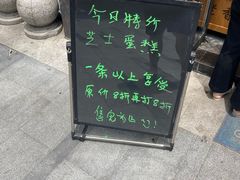 今日特价
芝士蛋糕
一条以上享受
原价8折再打8折
售完为止!!